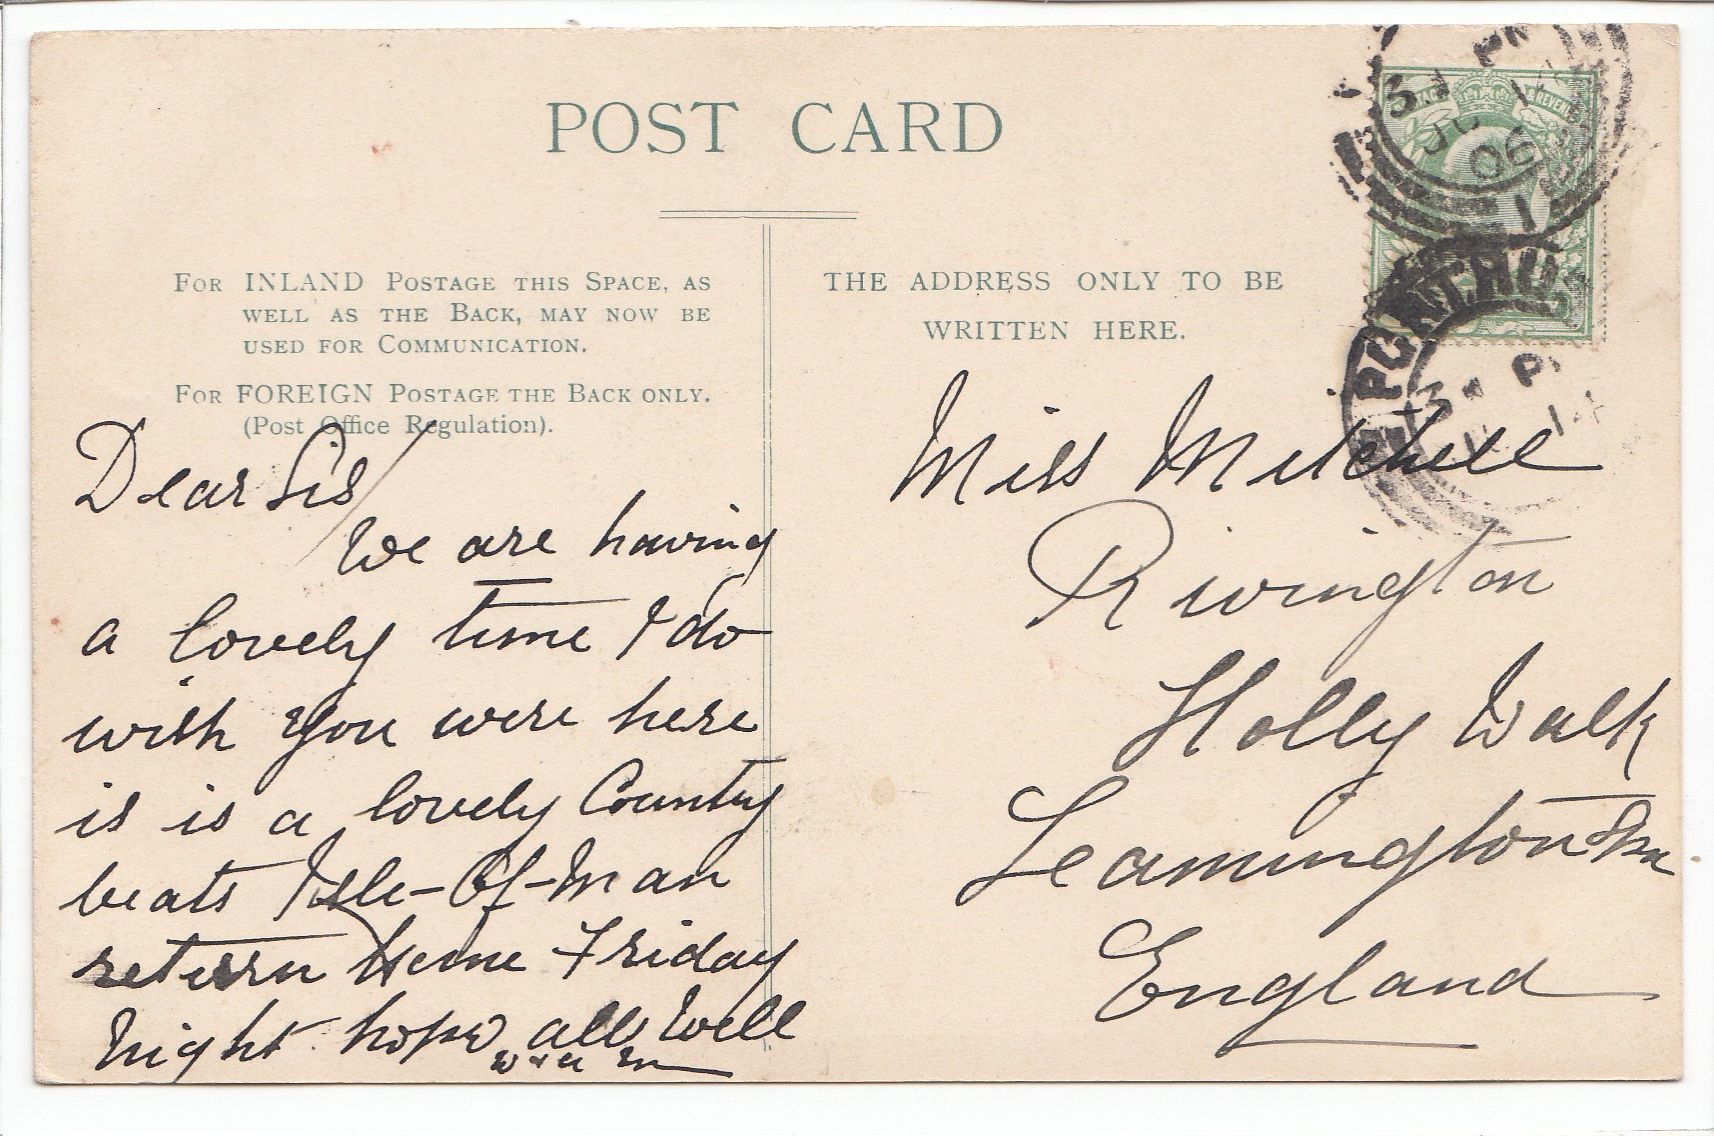 POST CARD
FOR INLAND POSTAGE THIS SPACE, AS
WELL AS THE BACK, MAY NOW BE
USED FOR COMMUNICATION.
FOR FOREIGN POSTAGE THE BACK ONLY.
(Post Office Regulation).
THE ADDRESS ONLY TO BE
WRITTEN HERE.
Dear Sis/
We are having
a lovely time I do
wish you were here
is is a lovely Country
beats Isle-Of-Man
return Home Friday
Night hope all Well
Miss Mitchell
Rivington
Holly Walk
Leamington Spa
England
PORTRUS
JU
06
1
14